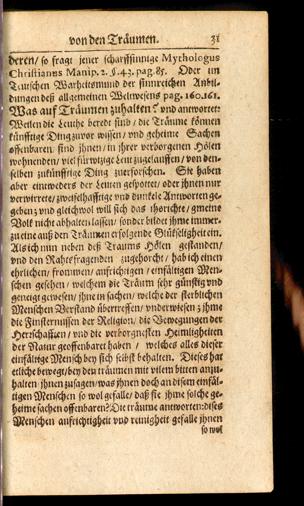 von den Träumen. 31
deren/ so fragt jener scharffsinnige Mythologus
Christianus Manip. 2. §. 43. pag. 85. Oder im
Teutschen Warheitsmund der sinnreichen Anbil-
dungen deß allgemeinen Weltwesens pag. 160. 161.
Was auf Träumen zuhalten? und antwortet:
Weilen die Leuthe beredt sind/ die Träume können
künfftige Ding zuvor wissen/ und geheime Sachen
offenbaren/ sind ihnen/ in ihrer verborgenen Hölen
wohnenden/ viel fürwitzige Leut zugelauffen/ von den-
selben zukünfftige Ding zuerforschen. Sie haben
aber eintweders der Leuten gespottet/ oder ihnen nur
verwirrete/ zweiffelhafftige und dunkele Antworten ge-
geben; und gleichwol will sich das thorichte/ gmeine
Volk nicht abhalten lassen/ sonder bildet ihme immer-
zu eine auß den Träumen erfolgende Glükseligkeit ein.
Als ich nun neben deß Traums Hölen gestanden/
und den Rahtsfragenden zugehorcht/ hab ich einen
ehrlichen/ frommen/ aufrichtigen/ einfältigen Men-
schen gesehen/ welchem die Träum sehr günstig und
geneigt gewesen/ ihne in sachen/ welche der sterblichen
Menschen Verstand übertreffen/ underwiesen; ihme
die Finsternussen der Religion, die Bewegungen der
Herschafften/ und die verborgnesten Heimligkeiten
der Natur geoffenbaret haben/ welches alles dieser
einfältige Mensch bey sich selbst behalten. Dieses hat
etliche bewegt/ bey den träumen mit vilem bitten anzu-
halten/ ihnen zusagen/ was ihnen doch an disem einfäl-
tigen Menschen so wol gefalle/ daß sie ihme solche ge-
heime sachen offenbaren? Die träume antworten: dises
Menschen aufrichtigkeit und reinigkeit gefalle ihnen
so wol